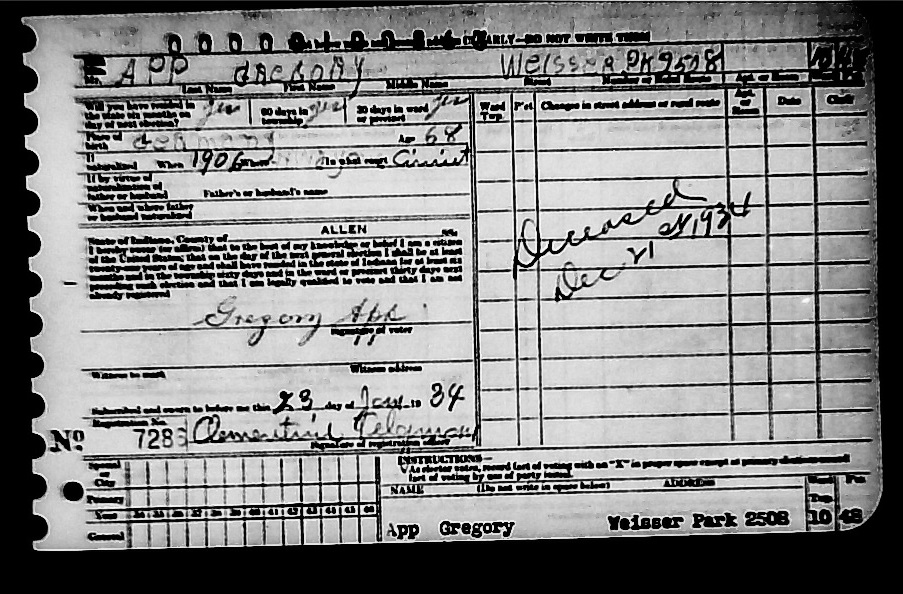 ARLY—DO NOT WRITE THESE
APP GREGORY WEISSER PK 2508
Last Name First Name Middle Name Street Number or Rural Route Apt. or Room
Will you have resided in the state six months on day of next election? yes 60 days in township yes 30 days in ward or precinct yes
Ward Twp. P'ct. Changes in street address or rural route Apt. or Room Date Clerk
Place of birth Germany Age 68
If naturalized When 1906 Where In what court Circuit
If by virtue of naturalization of father or husband Father's or husband's name
When and where father or husband naturalized
Deceased
Dec 21 st 1934
State of Indiana, County of ALLEN ss.
I hereby swear (or affirm) that to the best of my knowledge or belief I am a citizen
of the United States; that on the day of the next general election I shall be at least
twenty-one years of age and shall have resided in the state of Indiana for at least six
months and in the township sixty days and in the ward or precinct thirty days next
preceding such election and that I am legally qualified to vote and that I am not
already registered
Gregory App
Signature of voter
Witness to mark Witness address
Subscribed and sworn to before me this 23 day of Jan 19 34
Registration No.
No 728
Signature of registration officer
INSTRUCTIONS—
As elector votes, record fact of voting with an "X" in proper space except at primary elections record
fact of voting by use of party initial.
Special or City
Primary
Year
General
NAME (Do not write in space below) ADDRESS Ward Twp. Pct.
App Gregory Weisser Park 2508 10 48